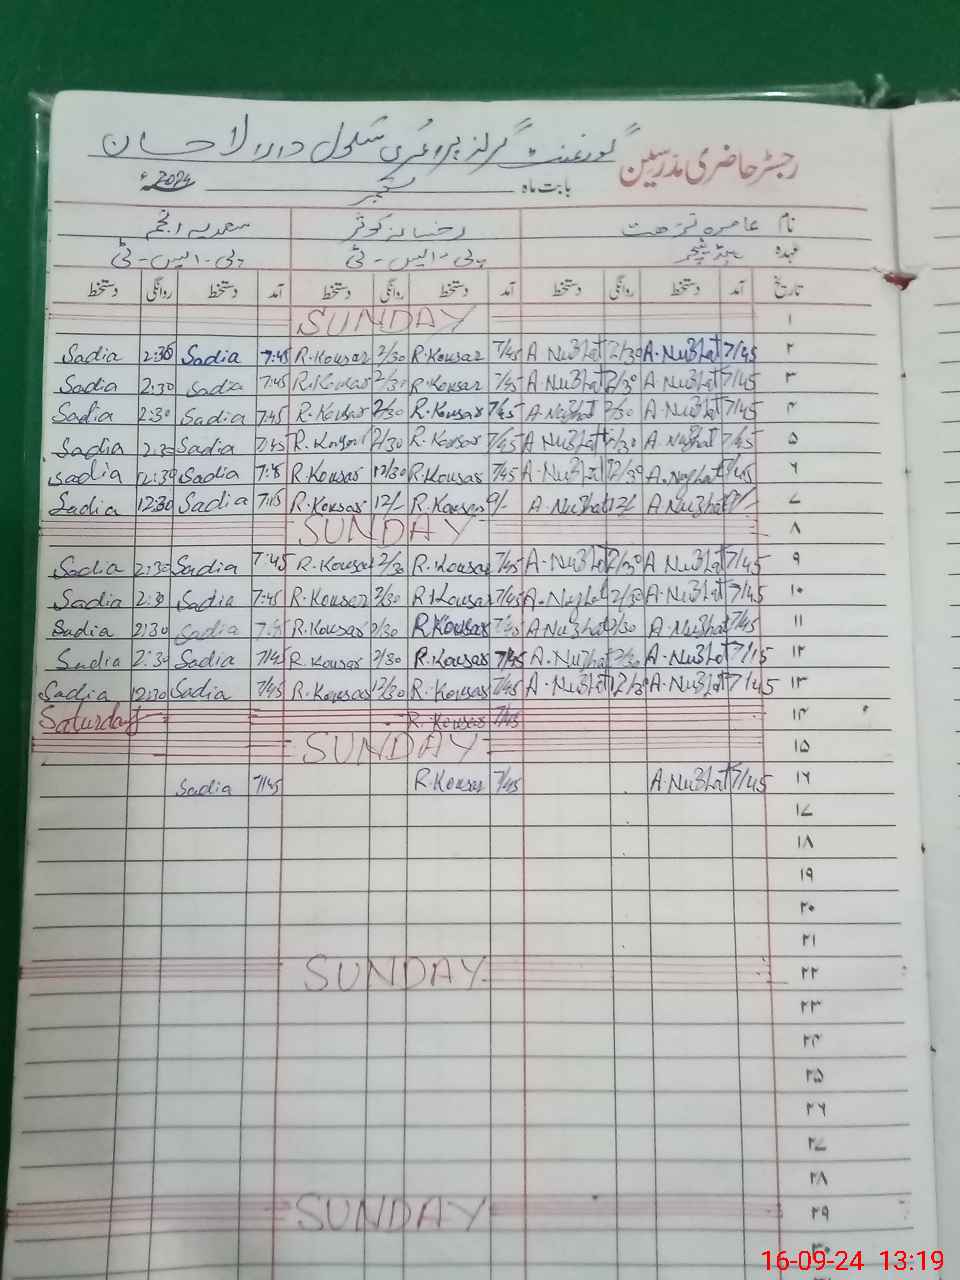 رجسٹر حاضری مدرسین گورنمنٹ گرلز پرائمری سکول دارالاحسان
بابت ماہ ستمبر 2024ء
نام عامرہ نزہت رخسانہ کوثر سعدیہ انجم
عہدہ ہیڈ ٹیچر پی۔ایس۔ٹی پی۔ایس۔ٹی
تاریخ آمد دستخط روانگی دستخط آمد دستخط روانگی دستخط آمد دستخط روانگی دستخط
SUNDAY ۱
Sadia 2:30 Sadia 7:45 R.Kousar 2/30 R.Kousar 7/45 A NuzHat 2/30 A.NuzHat 7/45 ۲
Sadia 2:30 Sadia 7:45 R.Kousar 2/30 R.Kousar 7/45 A.NuzHat 2/30 A.NuzHat 7/45 ۳
Sadia 2:30 Sadia 7:45 R.Kousar 2/30 R.Kousar 7/45 A.Nuzhat 2/30 A.NuzHat 7/45 ۴
Sadia 2:30 Sadia 7:45 R.Kousar 2/30 R.Kousar 7/45 A NuzHat 2/30 A.Nuzhat 7/45 ۵
Sadia 12:30 Sadia 7:45 R.Kousar 12/30 R.Kousar 7/45 A.NuzHat 12/30 A.Nuzhat 7/45 ۶
Sadia 12:30 Sadia 7:45 R.Kousar 12/- R.Kousar 9/- A.NuzHat 12/- A.NuzHat 9/- ۷
SUNDAY ۸
Sadia 2:30 Sadia 7:45 R.Kousar 2/30 R.Kousar 7/45 A.NuzHat 2/30 A NuzHat 7/45 ۹
Sadia 2:30 Sadia 7:45 R.Kousar 2/30 R.Kousar 7/45 A.NuzHat 2/30 A.NuzHat 7/45 ۱۰
Sadia 2:30 Sadia 7:45 R.Kousar 2/30 R.Kousar 7/45 A.NuzHat 2/30 A.Nuzhat 7/45 ۱۱
Sadia 2:30 Sadia 7/45 R.Kousar 2/30 R.Kousar 7/45 A.NuzHat 2/30 A.NuzHat 7/45 ۱۲
Sadia 12:30 Sadia 7/45 R.Kousar 12/30 R.Kousar 7/45 A.NuzHat 12/30 A.NuzHat 7/45 ۱۳
Saturday R.Kousar 7/45 ۱۴
SUNDAY ۱۵
Sadia 7/45 R.Kousar 7/45 A.NuzHat 7/45 ۱۶
۱۷
۱۸
۱۹
۲۰
۲۱
SUNDAY ۲۲
۲۳
۲۴
۲۵
۲۶
۲۷
۲۸
SUNDAY ۲۹
۳۰
16-09-24 13:19